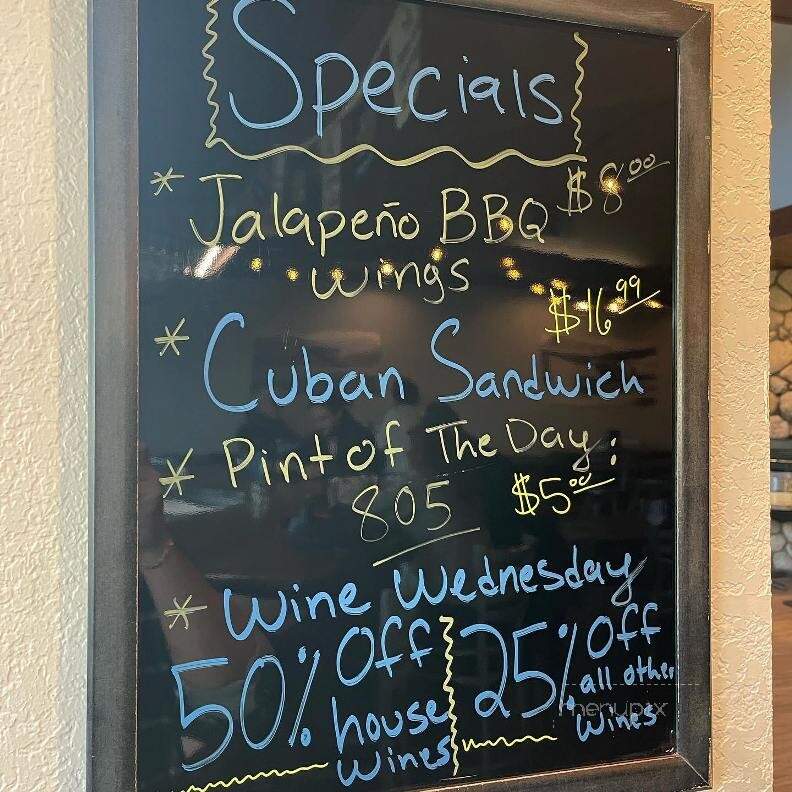 Specials
* Jalapeño BBQ $8.00
wings
$16.99
* Cuban Sandwich
* Pint of The Day:
805 $5.00
* Wine Wednesday
50% Off
house
Wines
25% Off
all other
Wines
menupix